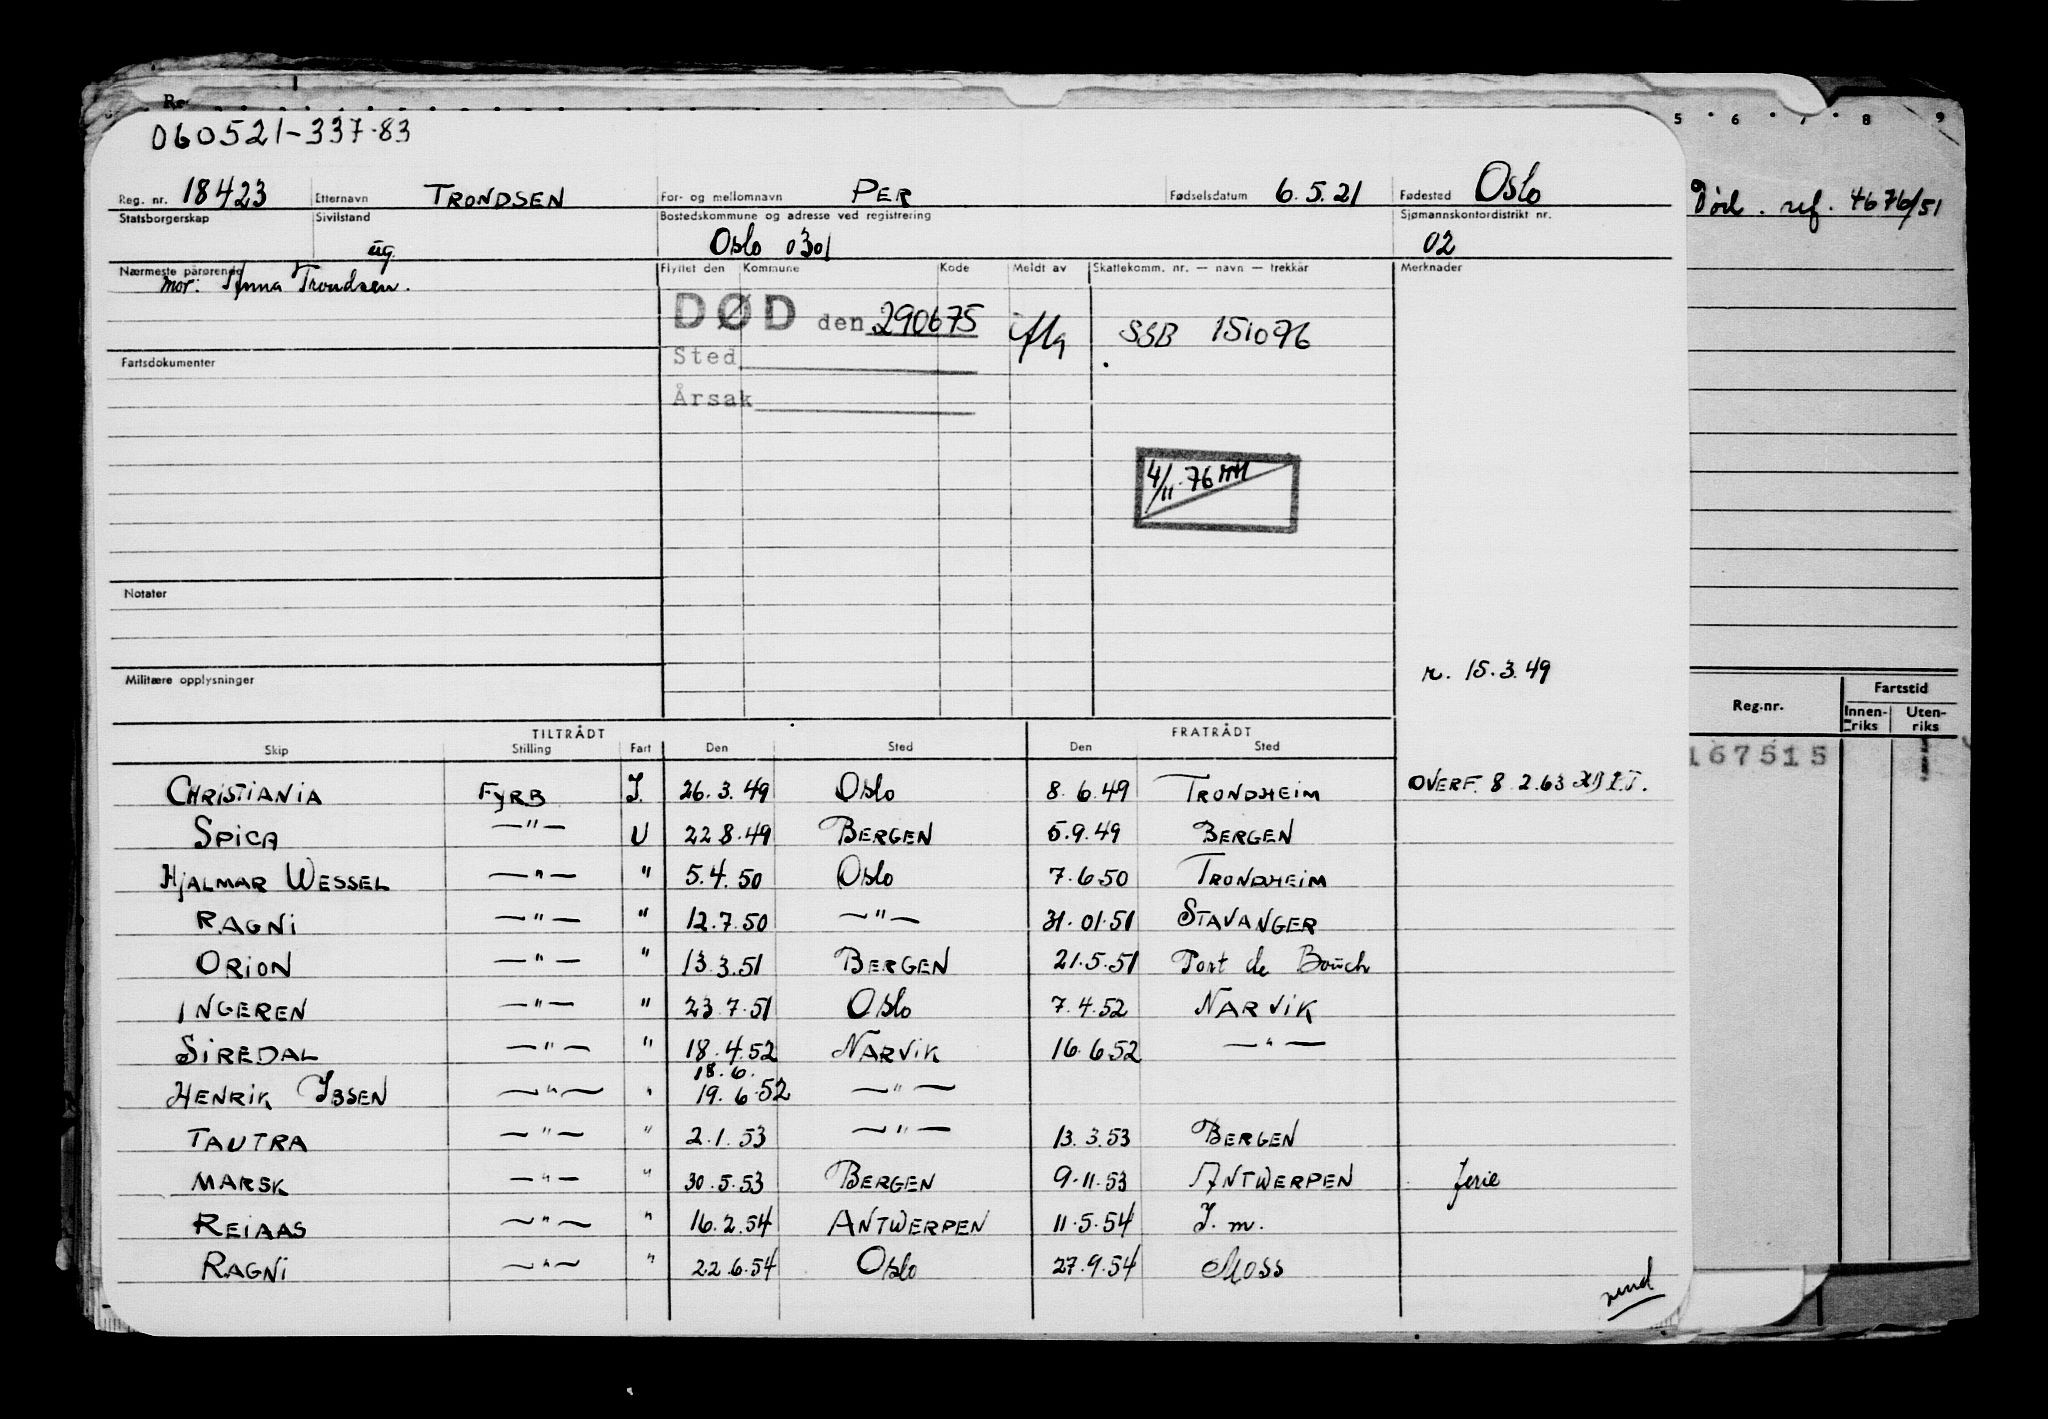 060521-337.83
Reg. nr. 18423 Etternavn TRONDSEN For- og mellomnavn PER Fødselsdatum 6.5.21 Fødested Oslo
Statsborgerskap Sivilstand ug. Bostedskommune og adresse ved registrering Oslo 0301 Sjømannskontordistrikt nr. 02
Nærmeste pårørende mor: Anna Trondsen. Flyttet den Kommune Kode Meldt av Skattekomm. nr. — navn — trekkår Merknader
DØD den 290675 SSB 151076
Sted
Årsak
Fartsdokumenter
4/11.76
Notater
Militære opplysninger
r. 15.3.49
TILTRÅDT FRATRÅDT
Skip Stilling Fart Den Sted Den Sted
CHRISTIANIA FYRB I. 26.3.49 Oslo 8.6.49 TRONDHEIM OVERF. 8 2.63
SPICA —"— U 22 8.49 BERGEN 5.9.49 BERGEN
HJALMAR WESSEL —"— " 5.4.50 Oslo 7.6.50 TRONDHEIM
RAGNI —"— " 12.7.50 —"— 31.01.51 STAVANGER
ORION —"— " 13.3.51 BERGEN 21.5.51 Port de Bouch
INGEREN —"— " 23.7.51 Oslo 7.4.52 NARVIK
SIREDAL —"— " 18.4.52 NARVIK 16.6.52 —"—
18.6.
HENRIK IBSEN —"— " 19.6.52 —"—
TAUTRA —"— " 2.1.53 —"— 13.3.53 BERGEN
MARSK —"— " 30.5.53 BERGEN 9.11.53 ANTWERPEN ferie
REIAAS —"— " 16.2.54 ANTWERPEN 11.5.54 I. m.
RAGNI —"— " 22.6.54 Oslo 27.9.54 Moss
vend
5 6 7 8 9
Død. ref. 4676/51
Reg.nr. Fartstid
Innen-riks Uten-riks
167515